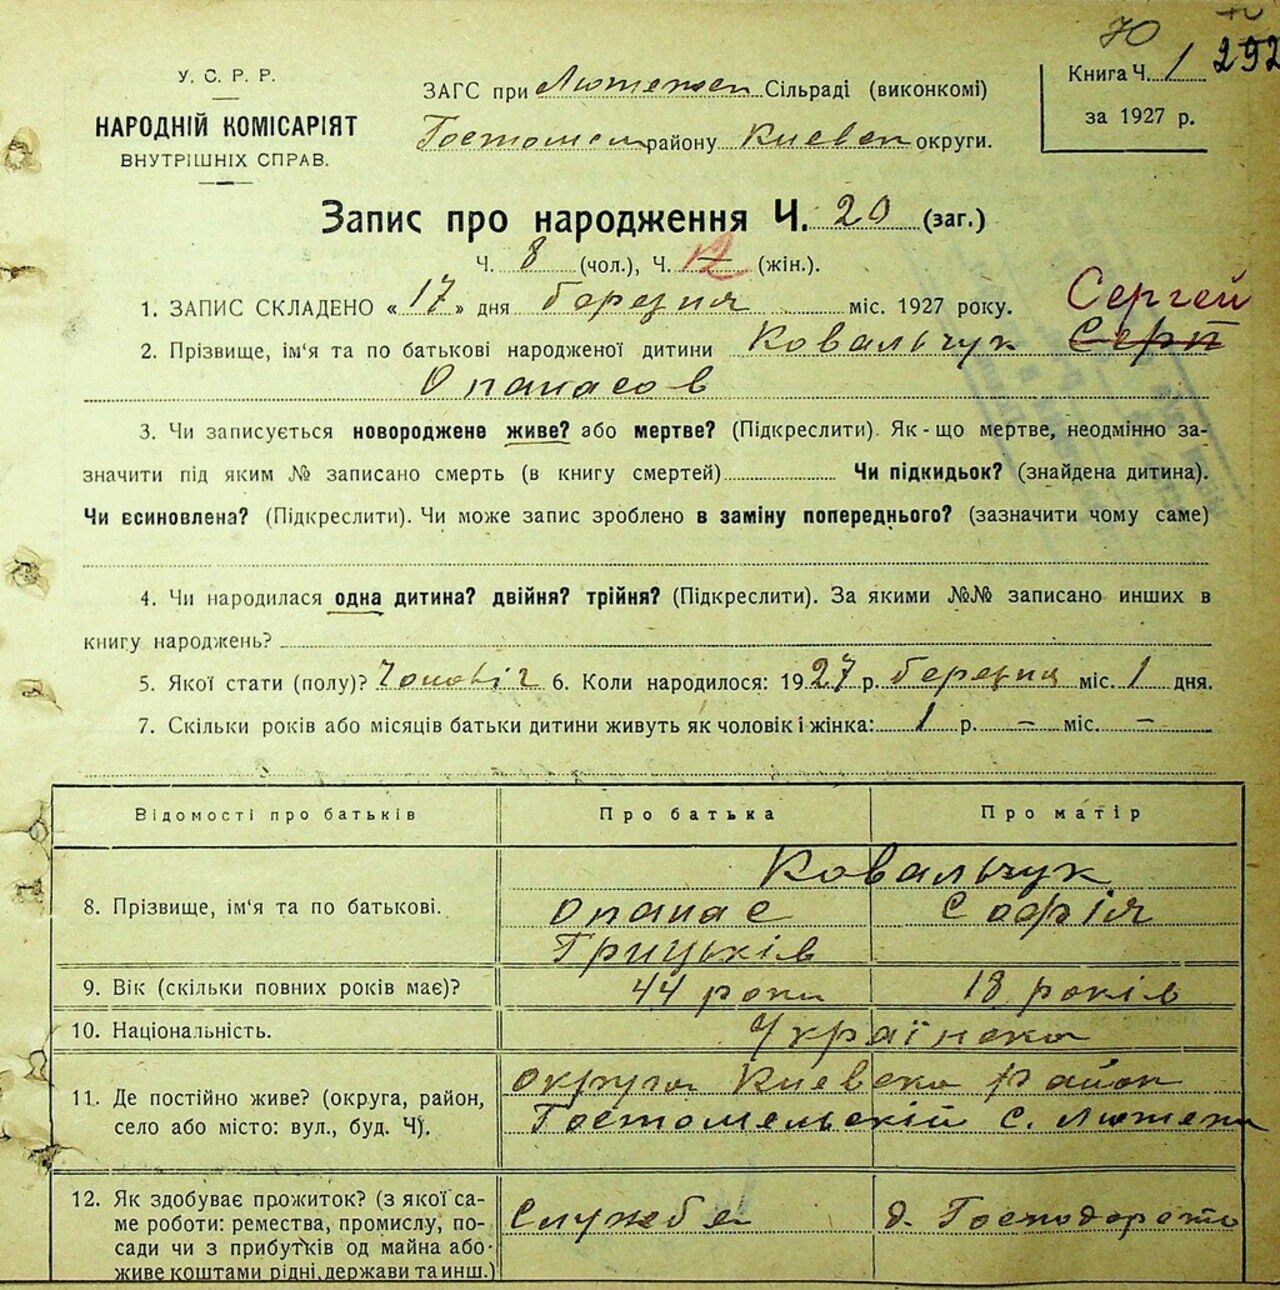 70
292
У. С. Р. Р.
НАРОДНІЙ КОМІСАРІЯТ
ВНУТРІШНІХ СПРАВ.
ЗАГС при Лютежсп Сільраді (виконкомі)
Гостомел району Киевск округи.
Книга Ч. 1
за 1927 р.
Запис про народження Ч. 20 (заг.)
Ч. 8 (чол.), Ч. 12 (жін.).
1. ЗАПИС СКЛАДЕНО «17» дня березня міс. 1927 року. Сергей
2. Прізвище, ім'я та по батькові народженої дитини Ковальчук Серп
Опанасов
3. Чи записується новороджене живе? або мертве? (Підкреслити). Як-що мертве, неодмінно за-
значити під яким № записано смерть (в книгу смертей) Чи підкидьок? (знайдена дитина).
Чи всиновлена? (Підкреслити). Чи може запис зроблено в заміну попереднього? (зазначити чому саме)
4. Чи народилася одна дитина? двійня? трійня? (Підкреслити). За якими №№ записано инших в
книгу народжень?
5. Якої стати (полу)? Чоловіч 6. Коли народилося: 1927 р. березня міс. 1 дня.
7. Скільки років або місяців батьки дитини живуть як чоловік і жінка: 1 р. – міс. –
Відомості про батьків Про батька Про матір
Ковальчук
8. Прізвище, ім'я та по батькові. Опанас Софія
Грицьків
9. Вік (скільки повних років має)? 44 роки 18 років
10. Національність. Українска
округа Киевска район
11. Де постійно живе? (округа, район, Гостомельскій с. Лютеж
село або місто: вул., буд. Ч).
12. Як здобуває прожиток? (з якої са- Служба д. Господарств
ме роботи: ремества, промислу, по-
сади чи з прибутків од майна або
живе коштами рідні, держави та инш.)